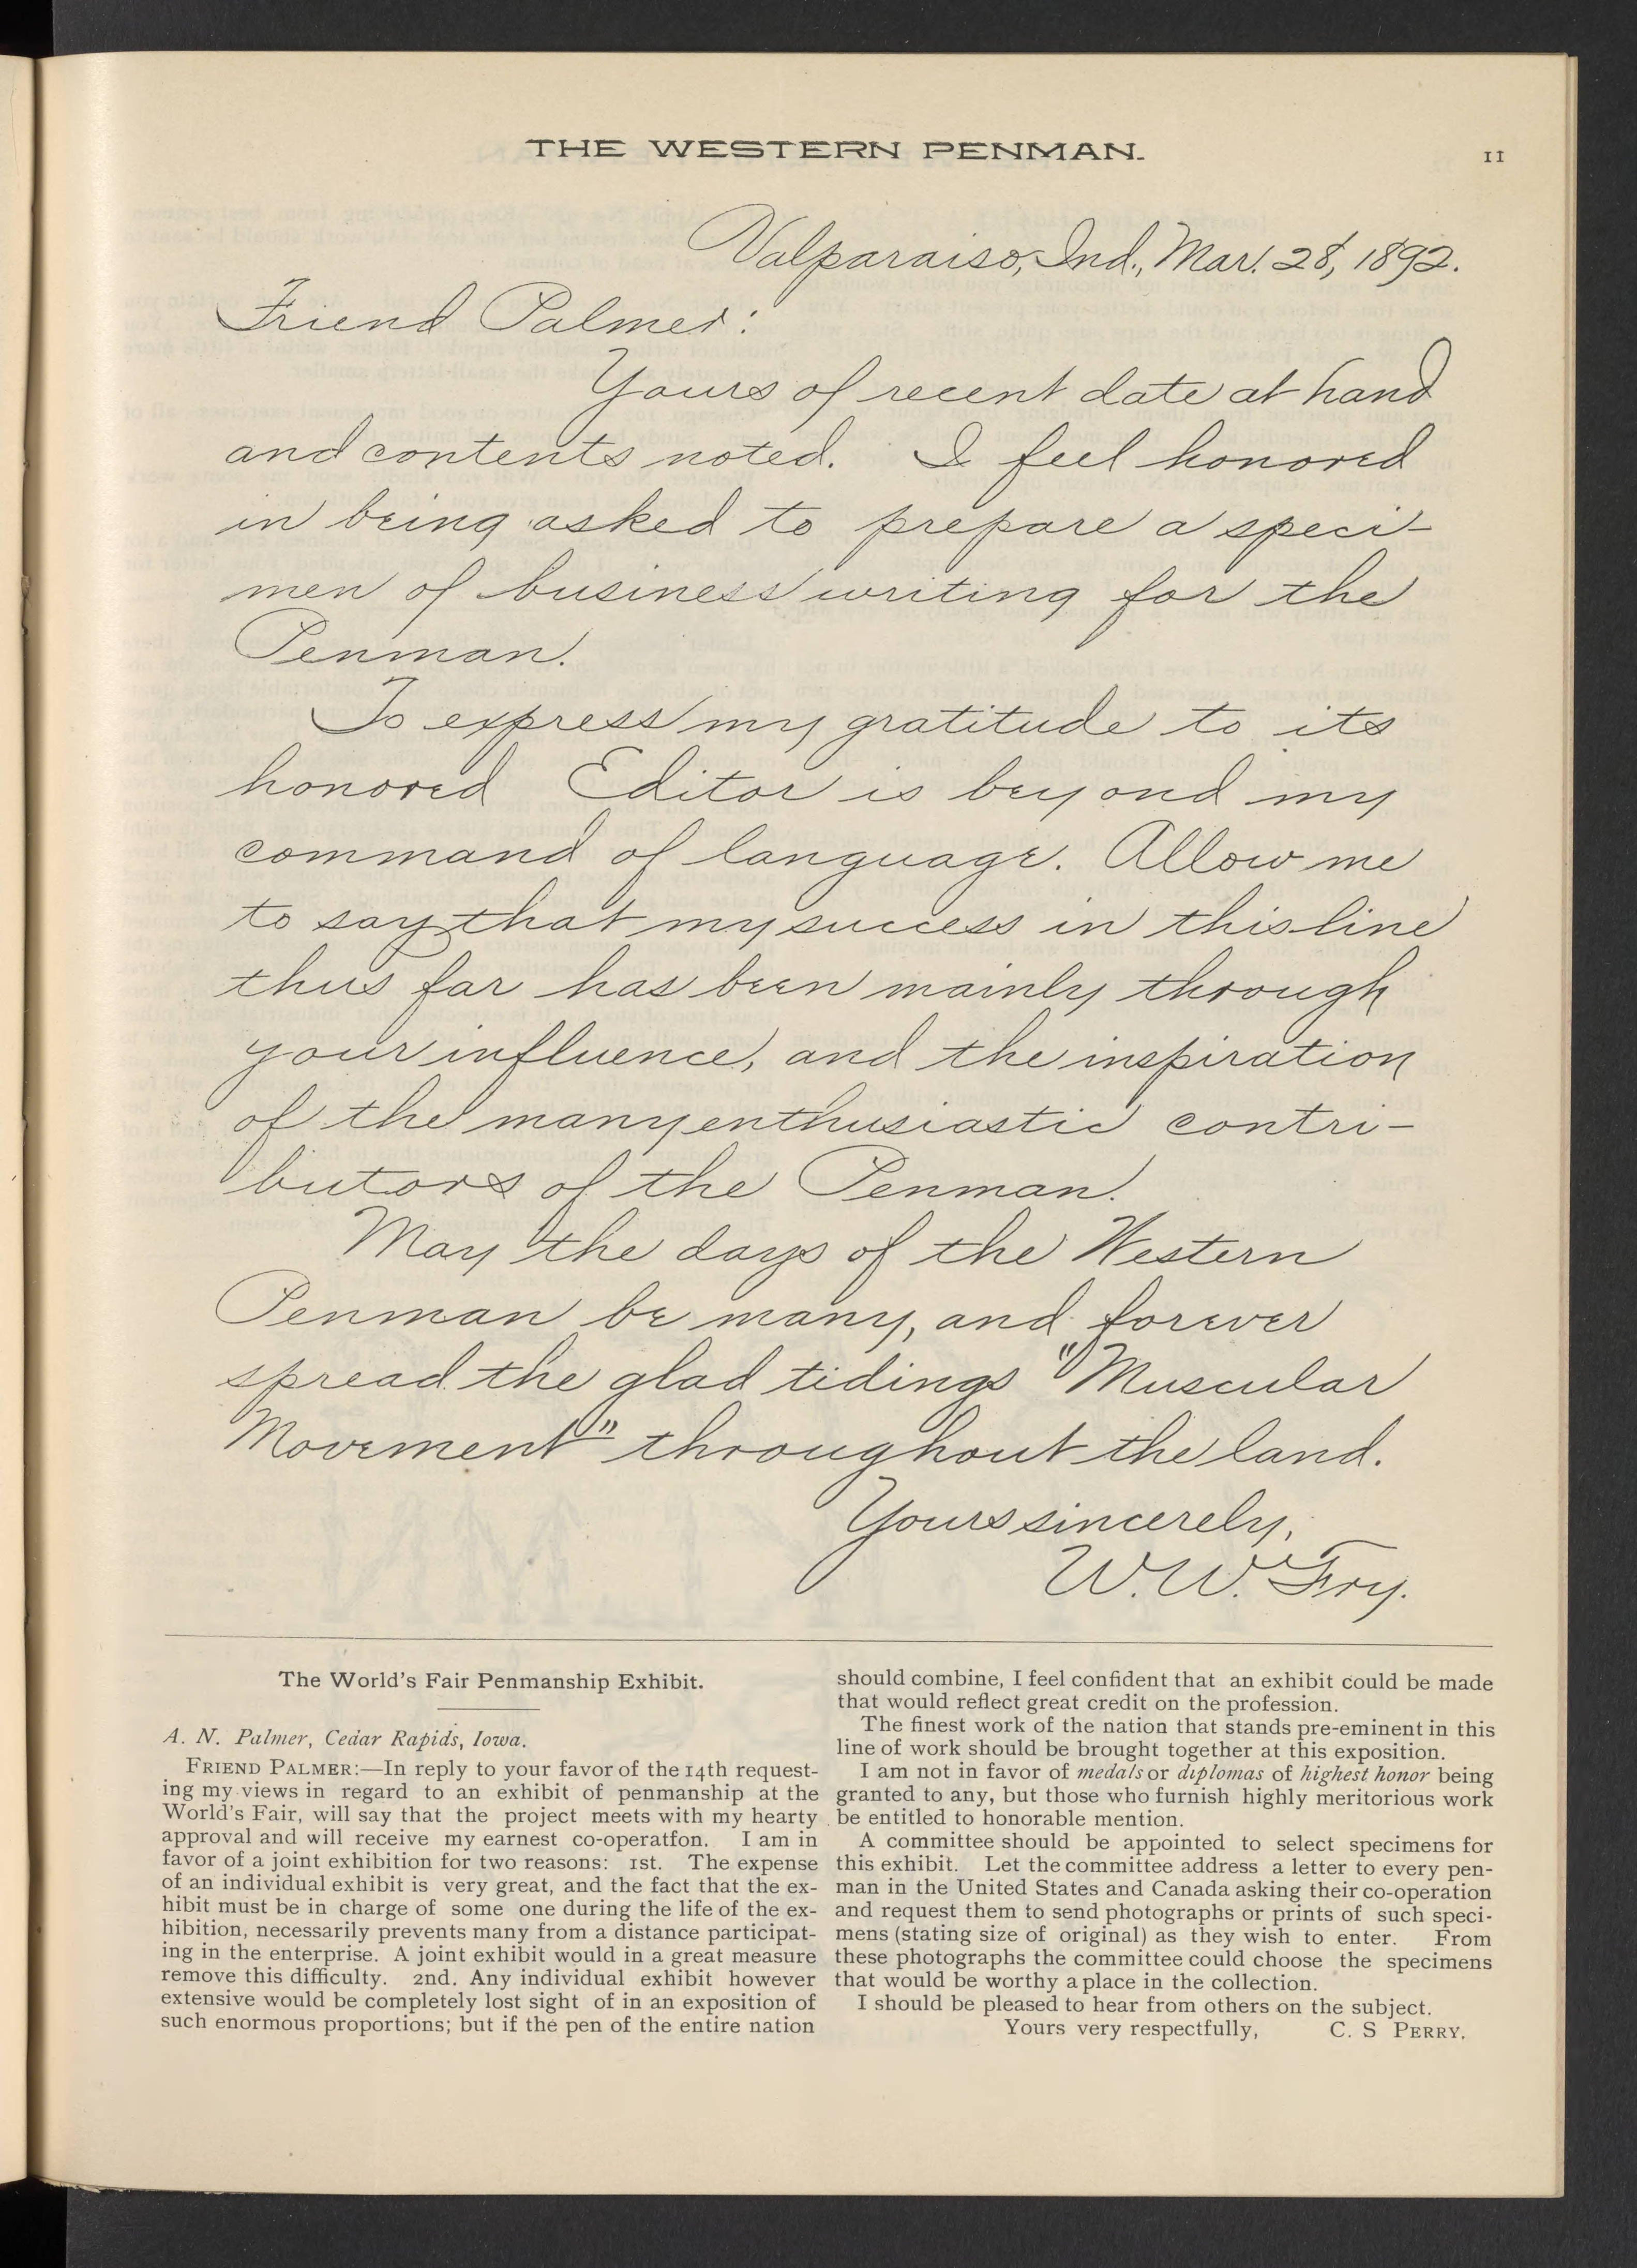 THE WESTERN PENMAN.
11
Valparaiso, Ind., Mar. 28, 1892.
Friend Palmer:
Yours of recent date at hand
and contents noted. I feel honored
in being asked to prepare a speci-
men of business writing for the
Penman.
To express my gratitude to its
honored Editor is beyond my
command of language. Allow me
to say that my success in this line
thus far has been mainly through
your influence, and the inspiration
of the many enthusiastic contri-
butors of the Penman.
May the days of the Western
Penman be many, and forever
spread the glad tidings "Muscular
Movement" throughout the land.
Yours sincerely,
W. W. Fry.
The World's Fair Penmanship Exhibit.
A. N. Palmer, Cedar Rapids, Iowa.
FRIEND PALMER:—In reply to your favor of the 14th request-
ing my views in regard to an exhibit of penmanship at the
World's Fair, will say that the project meets with my hearty
approval and will receive my earnest co-operatfon. I am in
favor of a joint exhibition for two reasons: 1st. The expense
of an individual exhibit is very great, and the fact that the ex-
hibit must be in charge of some one during the life of the ex-
hibition, necessarily prevents many from a distance participat-
ing in the enterprise. A joint exhibit would in a great measure
remove this difficulty. 2nd. Any individual exhibit however
extensive would be completely lost sight of in an exposition of
such enormous proportions; but if the pen of the entire nation
should combine, I feel confident that an exhibit could be made
that would reflect great credit on the profession.
The finest work of the nation that stands pre-eminent in this
line of work should be brought together at this exposition.
I am not in favor of medals or diplomas of highest honor being
granted to any, but those who furnish highly meritorious work
be entitled to honorable mention.
A committee should be appointed to select specimens for
this exhibit. Let the committee address a letter to every pen-
man in the United States and Canada asking their co-operation
and request them to send photographs or prints of such speci-
mens (stating size of original) as they wish to enter. From
these photographs the committee could choose the specimens
that would be worthy a place in the collection.
I should be pleased to hear from others on the subject.
Yours very respectfully, C. S PERRY.